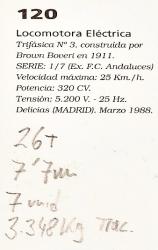 120
Locomotora Eléctrica
Trifásica Nº 3. construida por
Brown Boveri en 1911.
SERIE: 1/7 (Ex. F.C. Andaluces)
Velocidad máxima: 25 Km./h.
Potencia: 320 CV.
Tensión: 5.200 V. - 25 Hz.
Delicias (MADRID). Marzo 1988.
26t
7'7m
7 unid
3.348 Kg Trac.